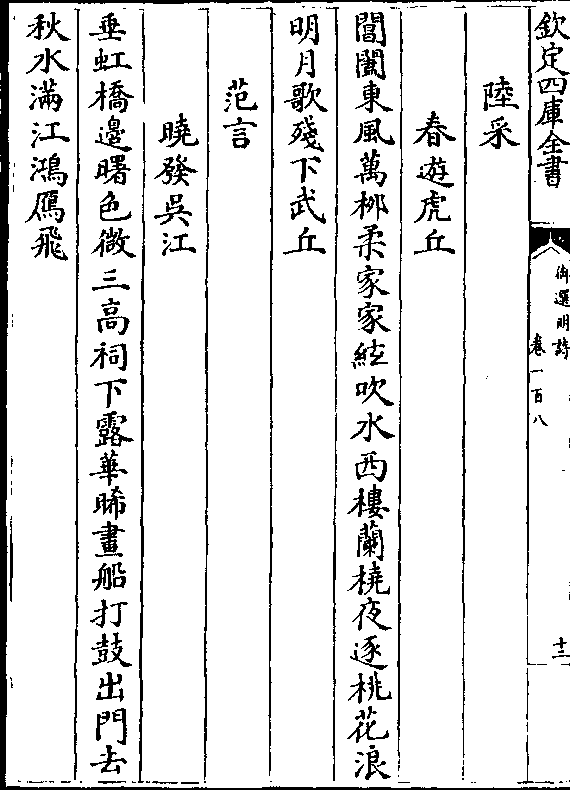 欽定四庫全書
御選明詩
卷一百八
十三
陸采
春遊虎丘
閶闔東風萬柳柔家家絃吹水西樓蘭橈夜逐桃花浪
明月歌殘下武丘
范言
曉發吳江
垂虹橋邊曙色微三高祠下露華晞畫船打鼓出門去
秋水滿江鴻鴈飛